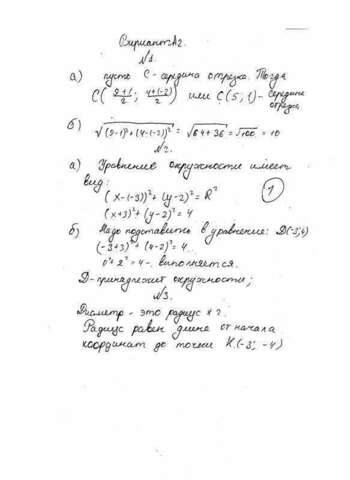 Вариант А2.
№1.
а) пусть С-середина отрезка. Тогда
С( 9+1/2 ; 4+(-2)/2 ) или С(5;1)- середина отрезка
б) √(9-1)²+(4-(-2))² = √64+36 = √100 = 10
№2.
а) Уравнение окружности имеет
вид:
(x-(-3))²+(y-2)²=R²
(x+3)²+(y-2)²=4
1
б) Надо подставить в уравнение: D(-3;4)
(-3+3)²+(4-2)²=4
0²+2²=4-. выполняется.
D-принадлежит окружности;
№3.
Диаметр - это радиус × 2.
Радиус равен длине от начала
координат до точки К.(-3; -4)